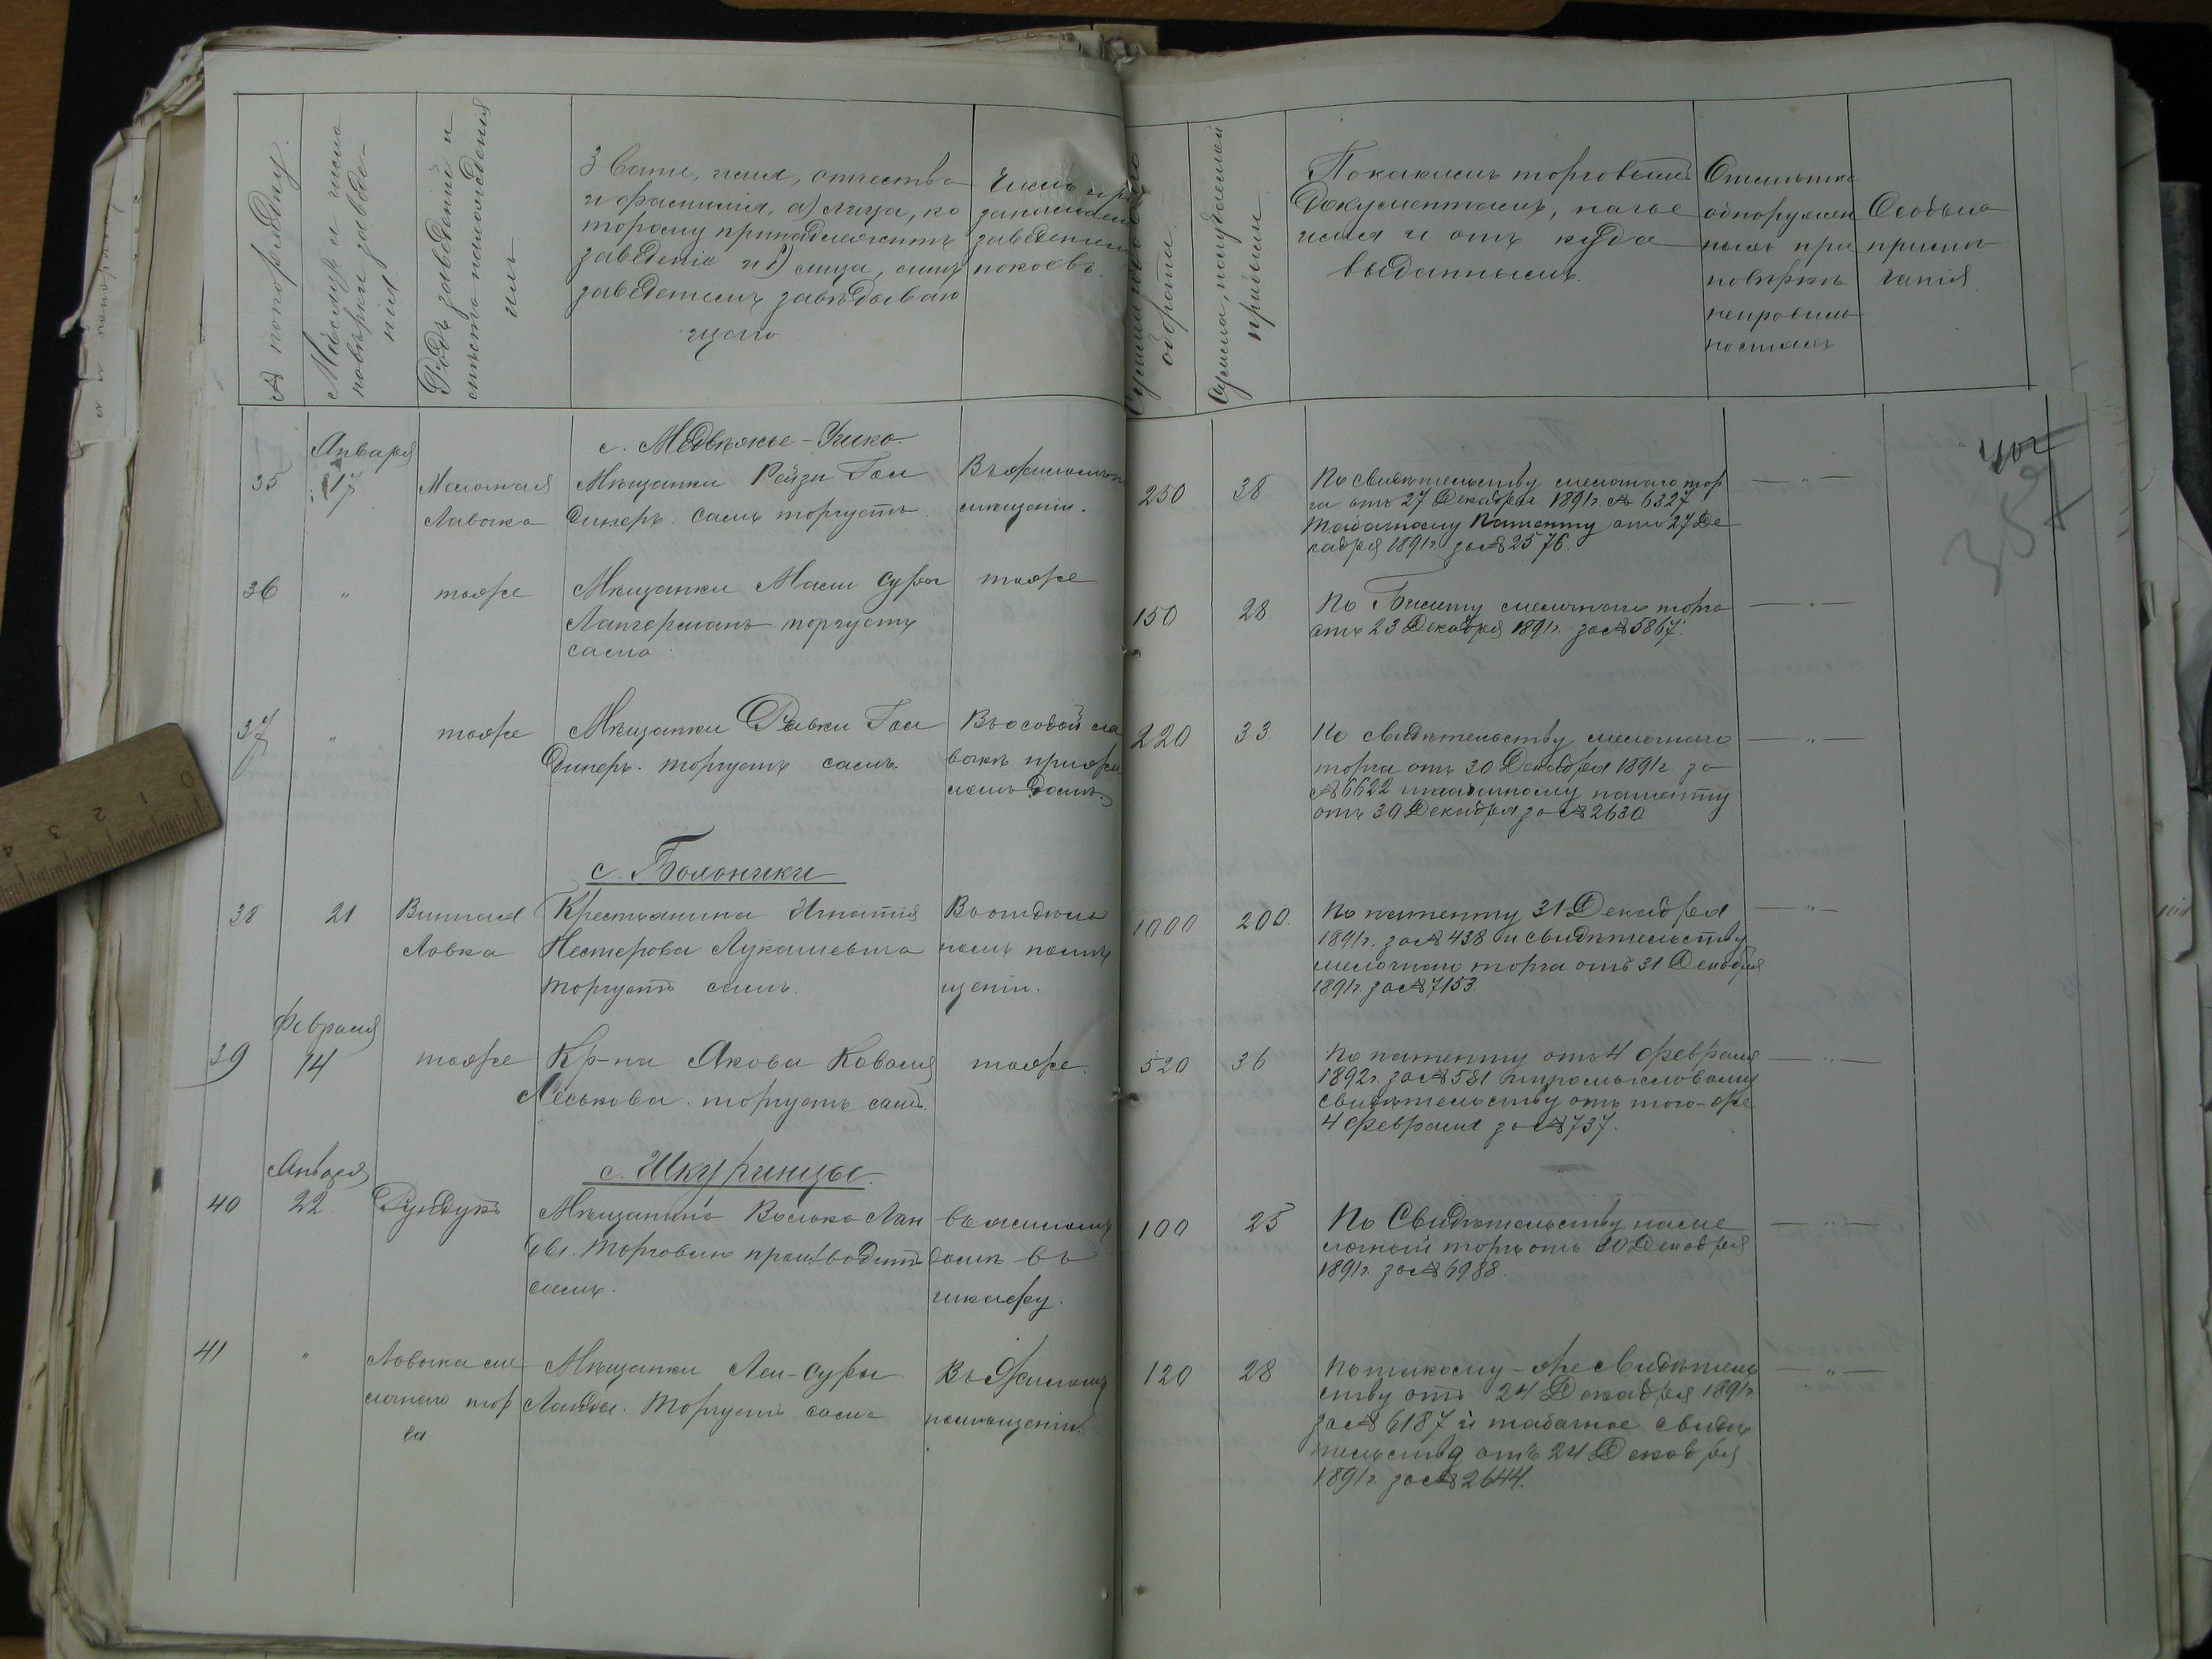 № по порядку.
Мѣсяцъ и число
повѣрки заведе-
нія
Родъ заведеній и
мѣсто нахожденія
ихъ
Званіе, имя, отчество
и фамилія, а) лица, ко
торому принадлежитъ
заведеніе и б) лица, симъ
заведеніемъ завѣдываю
щаго
Число
занимаем
заведеніем
покоевъ.
Сумма
оборота.
Сумма получаемой
прибыли
По какимъ торговымъ
документамъ, на чье
имя и откуда
выданнымъ.
Отмѣтка
обнаружен
ныхъ при
повѣркѣ
неправиль
ностяхъ
Особыя
примѣ
чанія.
с. Медвѣжье-Ушко.
Января
35
17
Мелочная
Лавочка
Мѣщанки Рейзи Гол
динеръ. Самъ торгуетъ.
Въ жиломъ по
мѣщеніи.
250
38
По свидѣтельству мелочнаго тор
га отъ 27 Декабря 1891г. № 6327
табачному патенту отъ 27 Де
кабря 1891г. за № 2576.
— " —
402
359
36
"
тоже
Мѣщанки Маси Суры
Лангерманъ торгуетъ
сама.
тоже
150
28
По Билету мелочнаго торга
отъ 23 Декабря 1891г. за № 5867.
— " —
37
"
тоже
Мѣщанки Ривки Гол
динеръ. торгуетъ самъ.
Въ особой ла
вочкѣ при жи
ломъ домѣ.
220
33.
По свидѣтельству мелочнаго
торга отъ 30 Декабря 1891г. за
№ 6622 и табачному патенту
отъ 30 Декабря за № 2630
— " —
с. Болоники
38
21
Винная
Лавка
Крестьянина Игнатія
Нестерова Лукашевича
торгуетъ самъ.
Въ отдѣль
номъ помѣ
щеніи.
1000
200.
По патенту 31 Декабря
1891г. за № 438 и свидѣтельству
мелочнаго торга отъ 31 Декабря
1891г. за № 7153.
— " —
Февраля
39
14
тоже
Кр-на Якова Коваля
Леськова. торгуетъ самъ.
тоже.
520
36
По патенту отъ 4 февраля
1892г. за № 581 и промысловому
свидѣтельству отъ того-же
4 февраля за № 737.
— " —
с. Шкуринцы.
Января
40
22
Рундукъ
Мѣщанина Волька Лан
ды. Торговлю производитъ
самъ.
въ жиломъ
домѣ въ
шкафу.
100
25
По Свидѣтельству на ме
лочный торгъ отъ 30 Декабря
1891г. за № 6988.
— " —
41
"
Лавочка ме
лочнаго тор
га
Мѣщанки Леи-Суры
Ланды. Торгуетъ сама
Въ жиломъ
помѣщеніи.
120
28
По такому-же свидѣтель
ству отъ 24 Декабря 1891г
за № 6187 и табачное свидѣ
тельство отъ 24 Декабря
1891г. за № 2644.
— " —
0 1 2 3 4